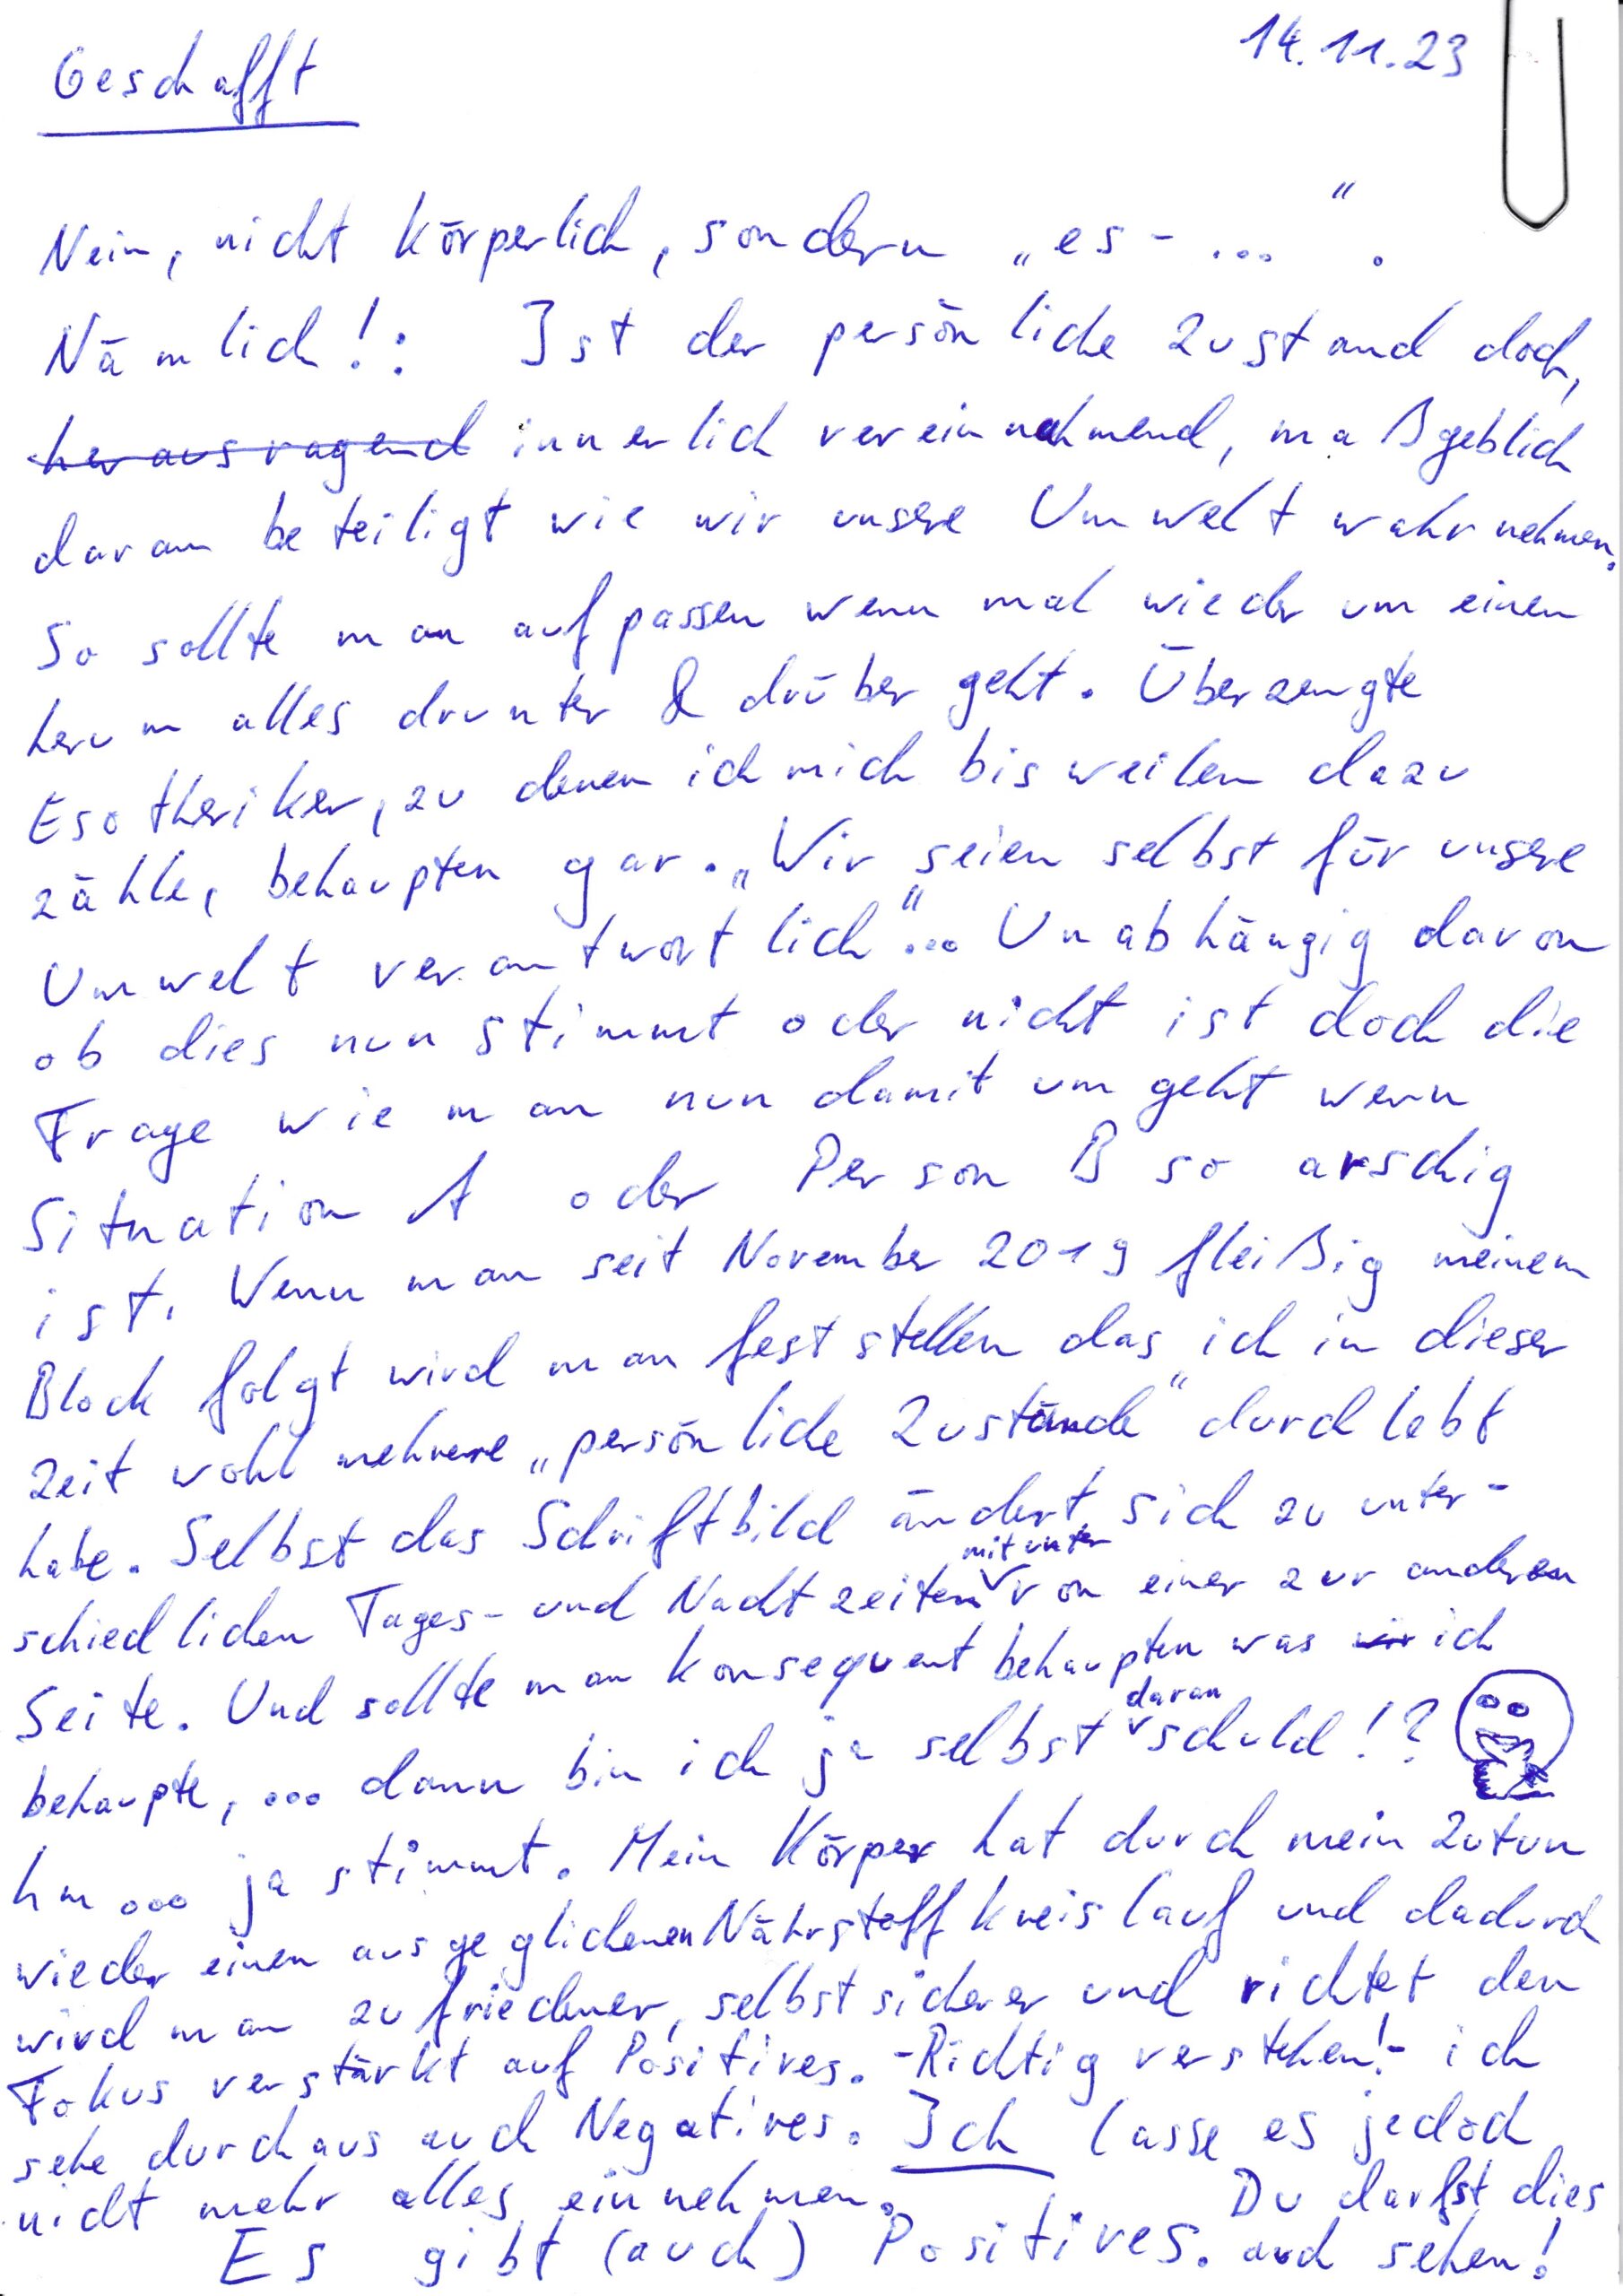 14.11.23
Geschafft
Nein, nicht körperlich, sondern „es-...“.
Nämlich!: Ist der persönliche Zustand doch,
herausragend innerlich vereinnahmend, maßgeblich
daran beteiligt wie wir unsere Umwelt wahrnehmen.
So sollte man aufpassen wenn mal wieder um einen
herum alles drunter & drüber geht. Überzeugte
Esotheriker, zu denen ich mich bisweilen dazu
zähle, behaupten gar. „Wir seien selbst für unsere
Umwelt verantwortlich“... Unabhängig davon
ob dies nun stimmt oder nicht ist doch die
Frage wie man nun damit um geht wenn
Situation A oder Person B so arschig
ist. Wenn man seit November 2019 fleißig meinem
Block folgt wird man feststellen das ich in dieser
Zeit wohl mehrere „persönliche Zustände“ durchlebt
habe. Selbst das Schriftbild ändert sich zu unter-
schiedlichen Tages- und Nachtzeiten mitunter von einer zur anderen
Seite. Und sollte man konsequent behaupten was wir ich
behaupte, ... dann bin ich ja selbst daran schuld!?
hm... ja stimmt. Mein Körper hat durch mein Zutun
wieder einen ausgeglichenen Nährstoffkreislauf und dadurch
wird man zufriedener, selbstsicherer und richtet den
Fokus verstärkt auf Positives. -Richtig verstehen!- ich
sehe durchaus auch Negatives. Ich lasse es jedoch
nicht mehr alles einnehmen. Du darfst dies
Es gibt (auch) Positives. auch sehen!